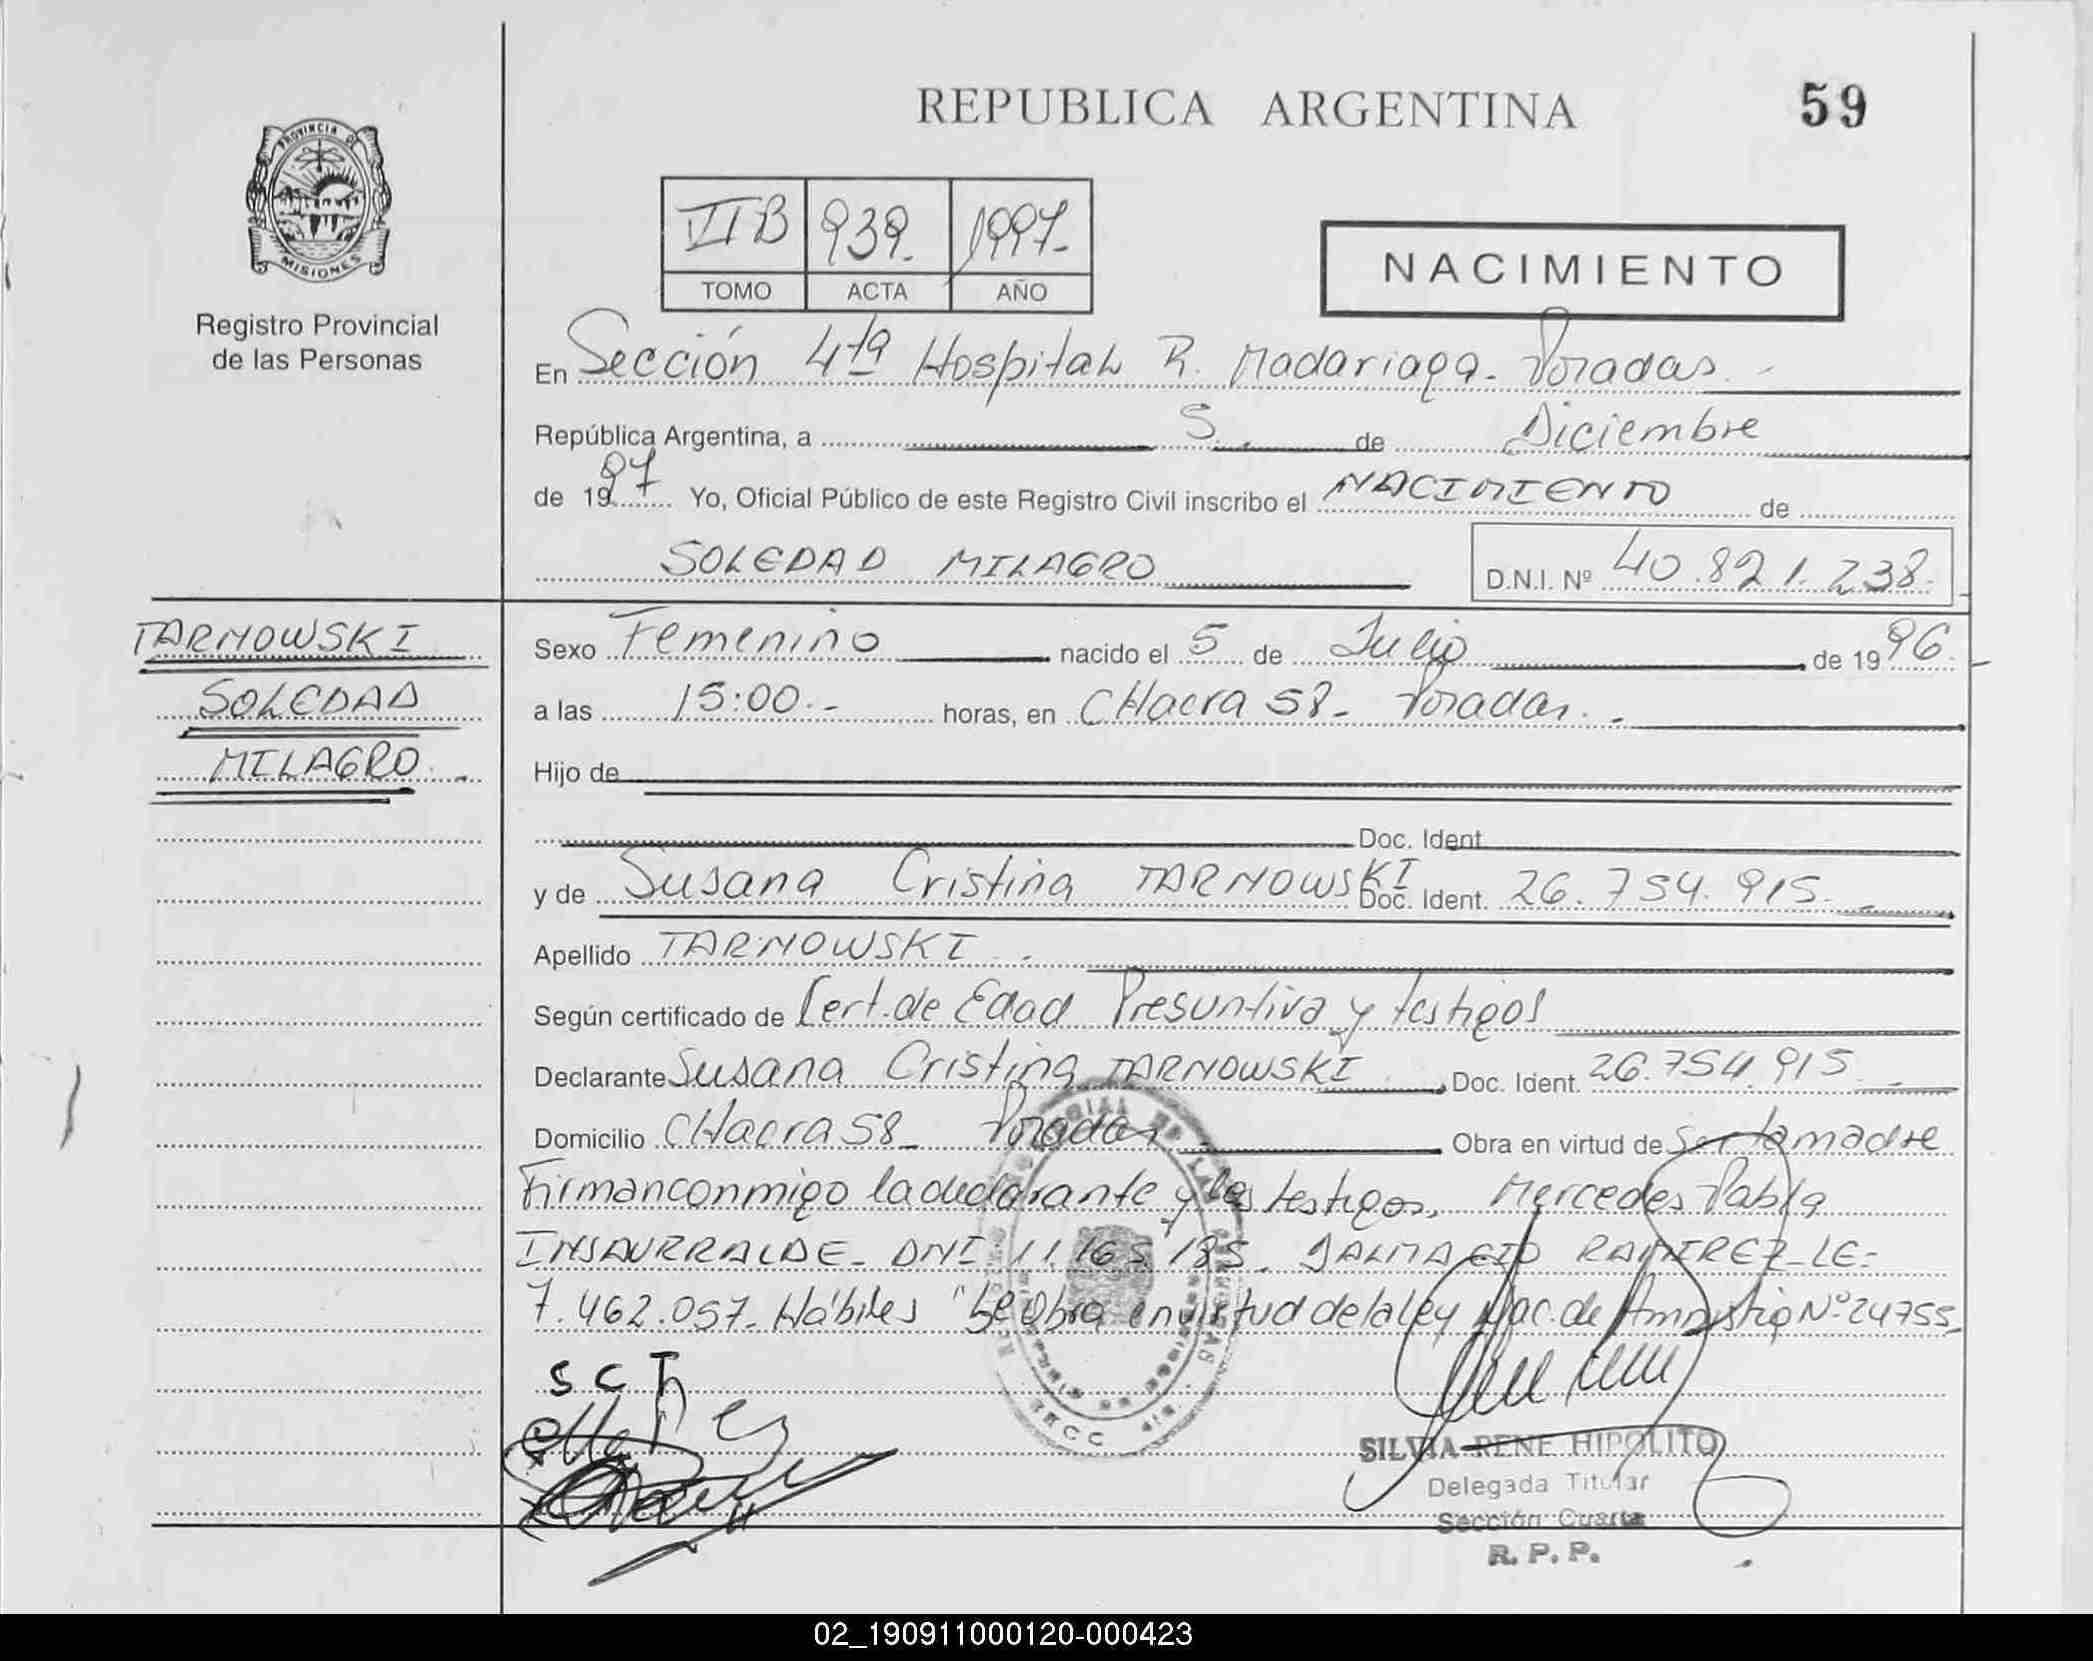 REPUBLICA ARGENTINA
59
PROVINCIA DE
MISIONES
Registro Provincial
de las Personas
VI B 939. 1997.-
TOMO ACTA AÑO
NACIMIENTO
En Sección 4ta Hospital R. Madariaga- Posadas.-
República Argentina, a 5. de Diciembre
de 1997 Yo, Oficial Público de este Registro Civil inscribo el NACIMIENTO de
SOLEDAD MILAGRO D.N.I. Nº 40.821.238.-
TARNOWSKI
SOLEDAD
MILAGRO.-
Sexo Femenino nacido el 5 de Julio de 1996.-
a las 15:00.- horas, en CHacra 58- Posadas.-
Hijo de
Doc. Ident.
y de Susana Cristina TARNOWSKI Doc. Ident. 26.754.915.-
Apellido TARNOWSKI.-
Según certificado de Cert. de Edad Presuntiva y testigos
Declarante Susana Cristina TARNOWSKI Doc. Ident. 26.754.915.-
Domicilio CHacra 58- Posadas Obra en virtud de Ser la madre
Firman conmigo la declarante y los testigos, Mercedes Pabla
INSAURRALDE- DNI 11.165.185. DALMACIO RAMIREZ-LE-
7.462.057- Hábiles "Se Obra en virtud de la ley Nac. de Amnistia Nº 24755-
S C T
SILVIA RENE HIPOLITO
Delegada Titular
Sección Cuarta
R. P. P.
02_190911000120-000423